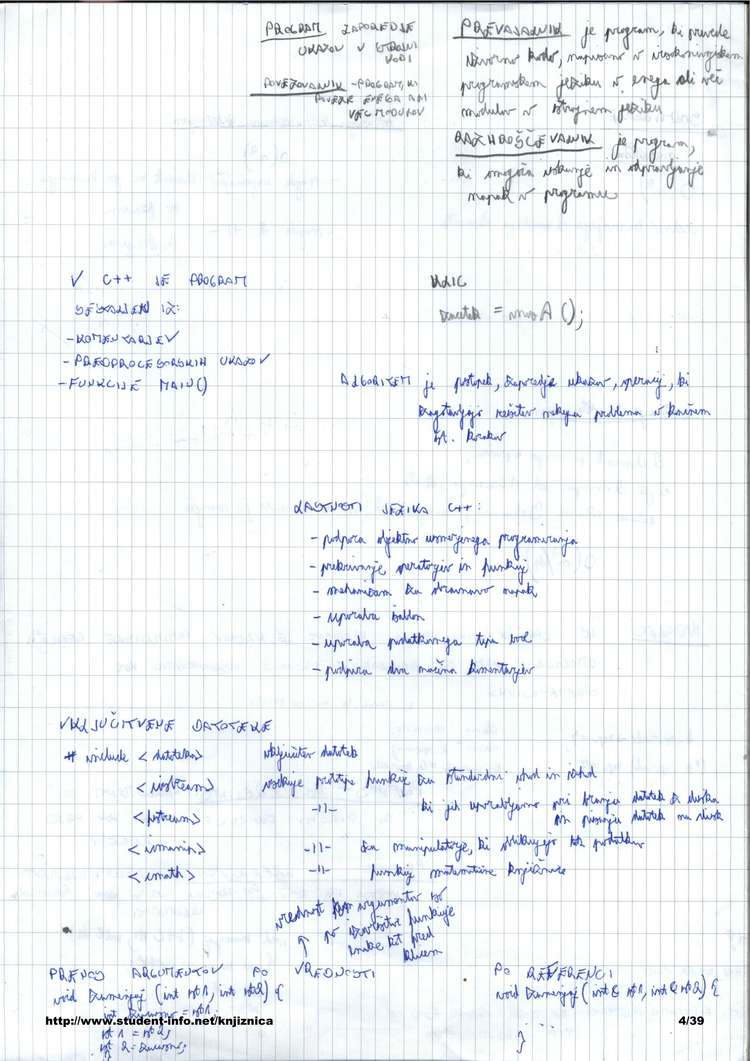 PROGRAM ZAPOREDJE
UKAZOV V STROJNI
KODI
POVEZOVALNIK - PROGRAM, KI
POVEŽE ENEGA ALI
VEČ MODULOV
PREVAJALNIK je program, ki prevede
izvorno kodo, napisano v visokonivojskem
programskem jeziku v enega ali več
modulov v strojnem jeziku
RAZHROŠČEVALNIK je program,
ki omogoča iskanje in odpravljanje
napak v programu
V C++ JE PROGRAM
SESTAVLJEN IZ:
- KOMENTARJEV
- PREDPROCESORSKIH UKAZOV
- FUNKCIJE MAIN()
KLIC
= A();
ALGORITEM je postopek, zaporedje ukazov, operacij, ki
zagotavljajo rešitev nekega problema v končnem
št. korakov
LASTNOSTI JEZIKA C++:
- podpora objektno usmerjenega programiranja
- prekrivanje operatorjev in funkcij
- mehanizem za obravnavo napak
- uporaba šablon
- uporaba podatkovnega tipa bool
- podpira dva načina komentarjev
VKLJUČITVENE DATOTEKE
# include < datoteka> vključitev datotek
<iostream> vsebuje prototipe funkcij za standardni vhod in izhod
<fstream> -11- ki jih uporabljamo pri branju datotek z diska
in pisanju datotek na disk
<iomanip> -11- za manipulatorje, ki oblikujejo tok podatkov
<cmath> -11- funkcij matematične knjižnice
vrednost argumentov so
po izvršitvi funkcije
enake kot pred
klicem
PRENOS ARGUMENTOV PO VREDNOSTI
void Zamenjaj (int št1, int št2) {
int = št1;
št1 = št2;
št2 =
PO REFERENCI
void Zamenjaj (int& št1, int& št2) {
...
}
http://www.student-info.net/knjiznica 4/39